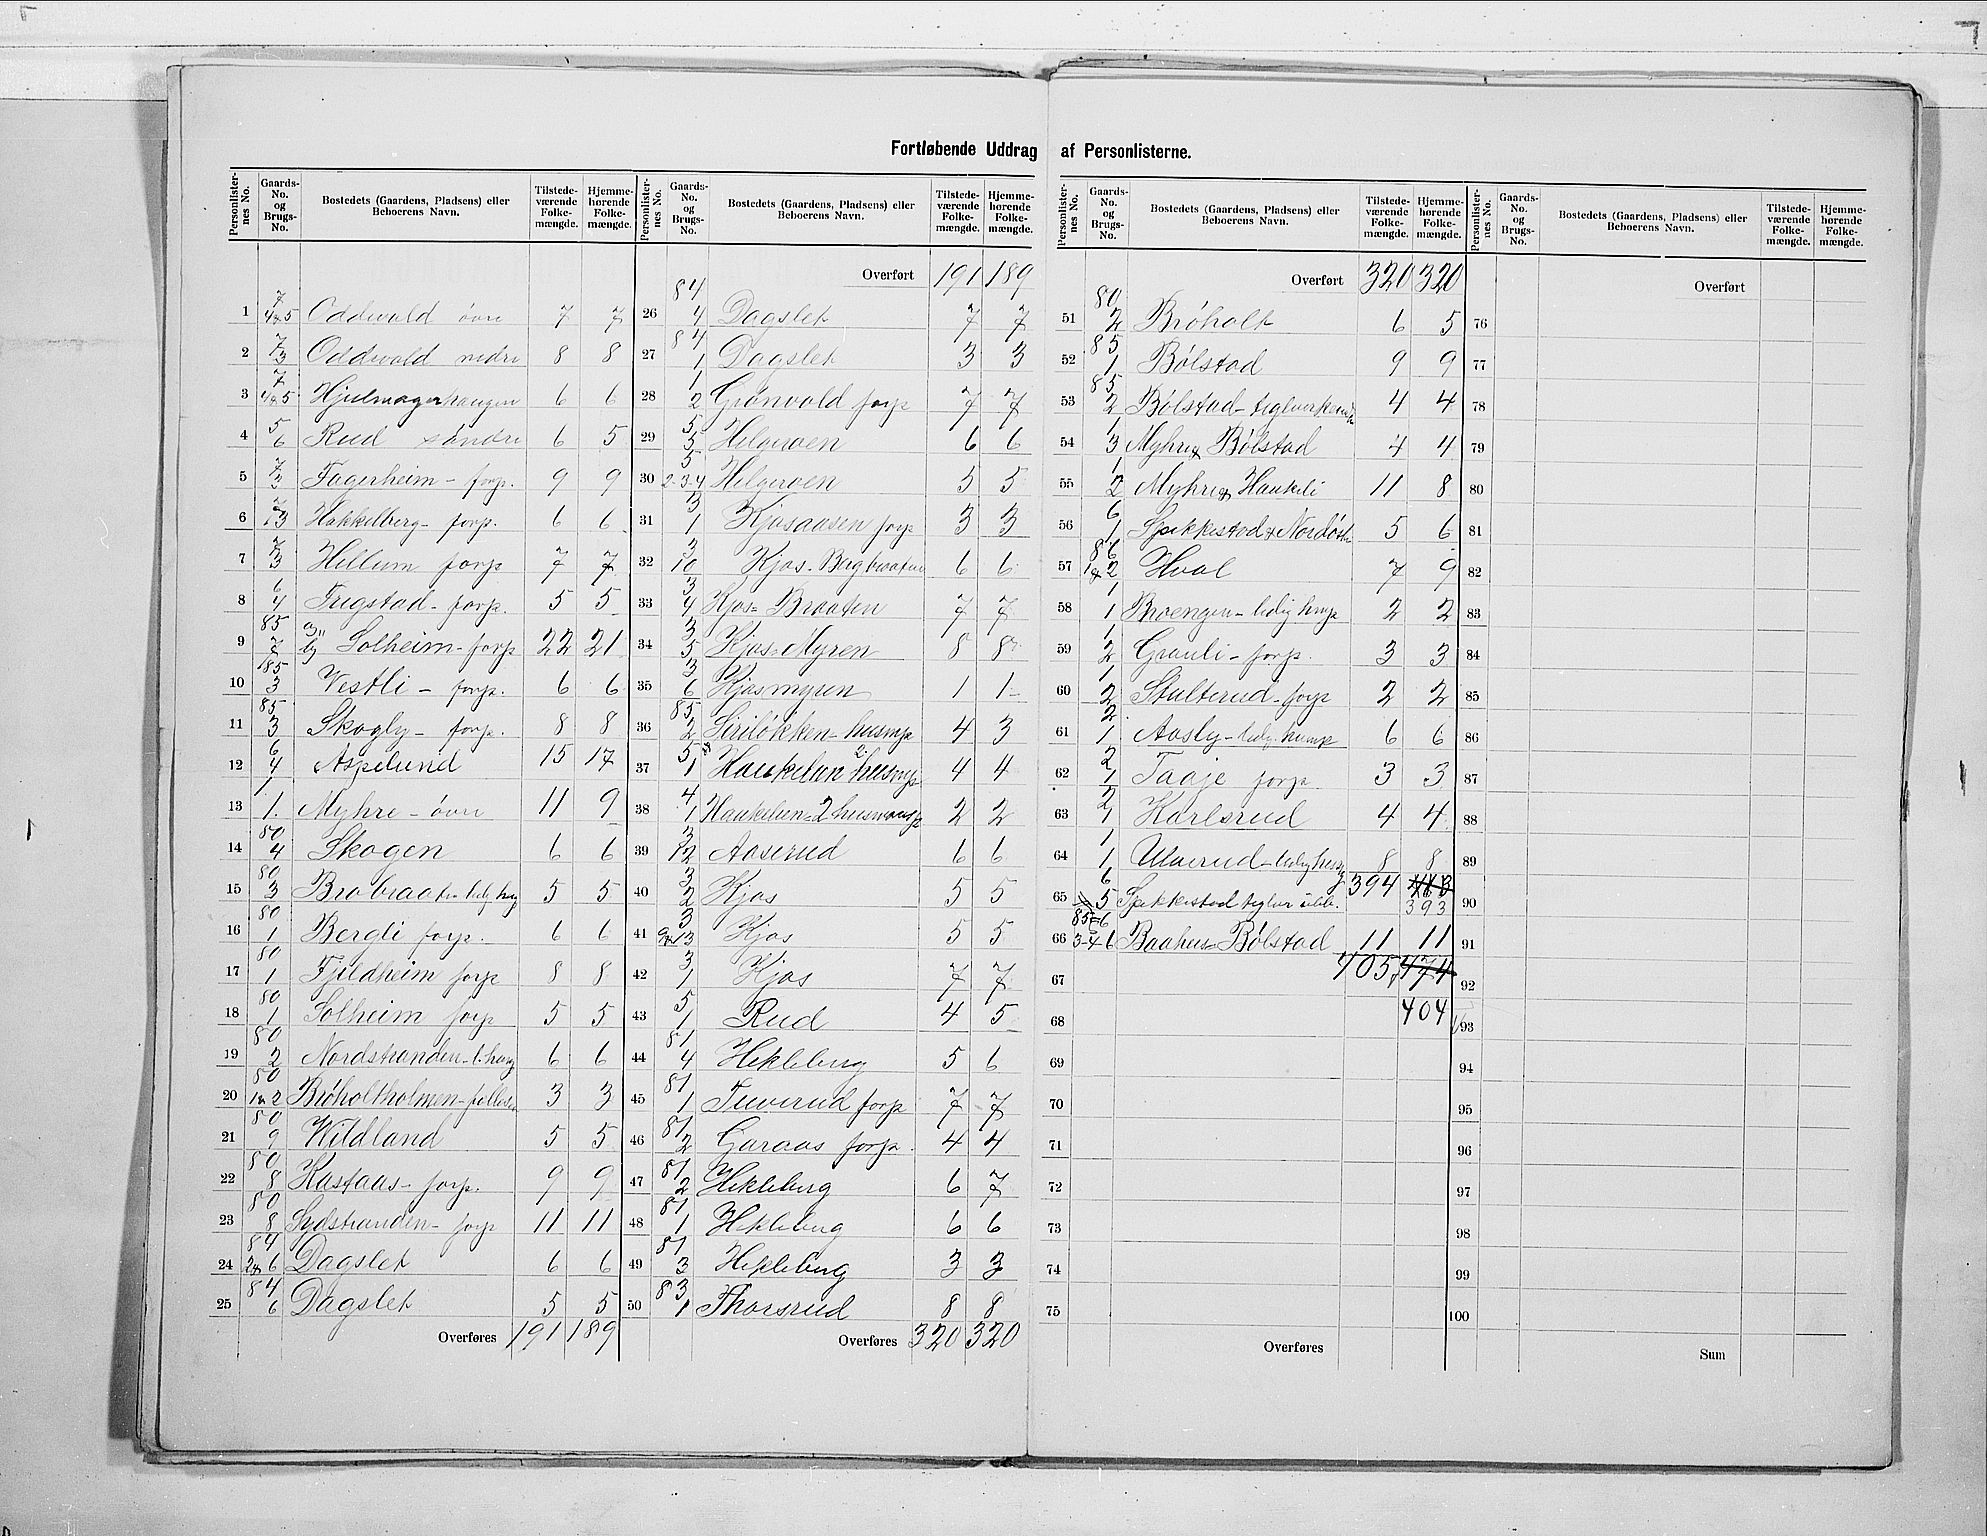 Fortløbende Uddrag af Personlisterne.
Personlister-nes No. Gaards-No. og Brugs-No. Bostedets (Gaardens, Pladsens) eller Beboerens Navn. Tilstede-værende Folke-mængde. Hjemme-hørende Folke-mængde.
1 7 4&5 Oddevald övre 7 7
2 7 3 Oddevald nedre 8 8
3 7 4&5 Hjulmagerhaugen 6 6
4 5 6 Rud söndre 6 5
5 7 3 Fagerheim - forp. 9 9
6 7 13 Hakkelberg - forp. 6 6
7 7 3 Hellum forp 7 7
8 6 4 Frigstad - forp. 5 5
9 85 7 Solheim - forp 22 21
10 185 3 Vestli - forp. 6 6
11 85 3 Skogly - forp. 8 8
12 6 4 Aspelund 15 17
13 1 1. Myhre - övre 11 9
14 80 4 Skogen 6 6
15 80 3 Brobraaten 5 5
16 80 1 Bergli forp. 6 6
17 80 1 Fjeldheim forp 8 8
18 80 1 Solheim forp 5 5
19 80 2 Nordstranden 6 6
20 80 1&2 Brøholtholmen - 3 3
21 80 9 Wildland 5 5
22 80 8 Kastaas - forp. 9 9
23 80 8 Sydstranden - forp 11 11
24 84 2&6 Dagslet 6 6
25 84 6 Dagslet 5 5
Overføres 191 189
Personlister-nes No. Gaards-No. og Brugs-No. Bostedets (Gaardens, Pladsens) eller Beboerens Navn. Tilstede-værende Folke-mængde. Hjemme-hørende Folke-mængde.
Overført 191 189
26 84 4 Dagslet 7 7
27 84 1 Dagslet 3 3
28 1 2 Grønvold forp 7 7
29 5 5 Helgeroen 6 6
30 5 2-3-4 Helgeroen 5 5
31 3 1 Kjosaasen forp 3 3
32 3 10 Kjos - Bergbraaten 6 6
33 3 4 Kjos = Braaten 7 7
34 3 5 Kjos = Myren 8 8
35 3 6 Kjosmyren 1 1
36 85 2 Siriløkken - husmp 4 3
37 5 1 Haukelien 2. husmp 4 4
38 4 1 Haukelien = 2 husmansp 2 2
39 3 12 Aaserud 6 6
40 3 2 Kjos 5 5
41 3 9&13 Kjos 5 5
42 3 1 Kjos 7 7
43 5 1 Rud 4 5
44 81 4 Hekleberg 5 6
45 81 1 Tuverud forp 7 7
46 81 2 Garaas forp. 4 4
47 81 2 Hekleberg 6 7
48 81 1 Hekleberg 6 6
49 81 3 Hekleberg 3 3
50 83 1 Thorsrud 8 8
Overføres 320 320
Personlister-nes No. Gaards-No. og Brugs-No. Bostedets (Gaardens, Pladsens) eller Beboerens Navn. Tilstede-værende Folke-mængde. Hjemme-hørende Folke-mængde.
Overført 320 320
51 80 2 Brøholt 6 5
52 85 1 Bølstad 9 9
53 85 2 Bølstad - teglverk 4 4
54 1 3 Myhre & Bølstad 4 4
55 1 2 Myhre & Haukeli 11 8
56 6 1 Spikkestad & Nordöst 5 6
57 86 1&2 Hval 7 9
58 1 1 Broengen - ledig husp 2 2
59 1 2 Granli - forp. 3 3
60 1 2 Stulterud - forp 2 2
61 2 1 Aasly - ledig husmp 6 6
62 2 1 Taaje forp. 3 3
63 2 1 Karlsrud 4 4
64 1 1 Ulverud - 8 8
394 413
393
65 6 5 Spikkestad teglv
66 85 = 6 3-4 6 Baahus = Bølstad 11 11
405 474
404
67
68
69
70
71
72
73
74
75
Overføres
Personlister-nes No. Gaards-No. og Brugs-No. Bostedets (Gaardens, Pladsens) eller Beboerens Navn. Tilstede-værende Folke-mængde. Hjemme-hørende Folke-mængde.
Overført
76
77
78
79
80
81
82
83
84
85
86
87
88
89
90
91
92
93
94
95
96
97
98
99
100
Sum